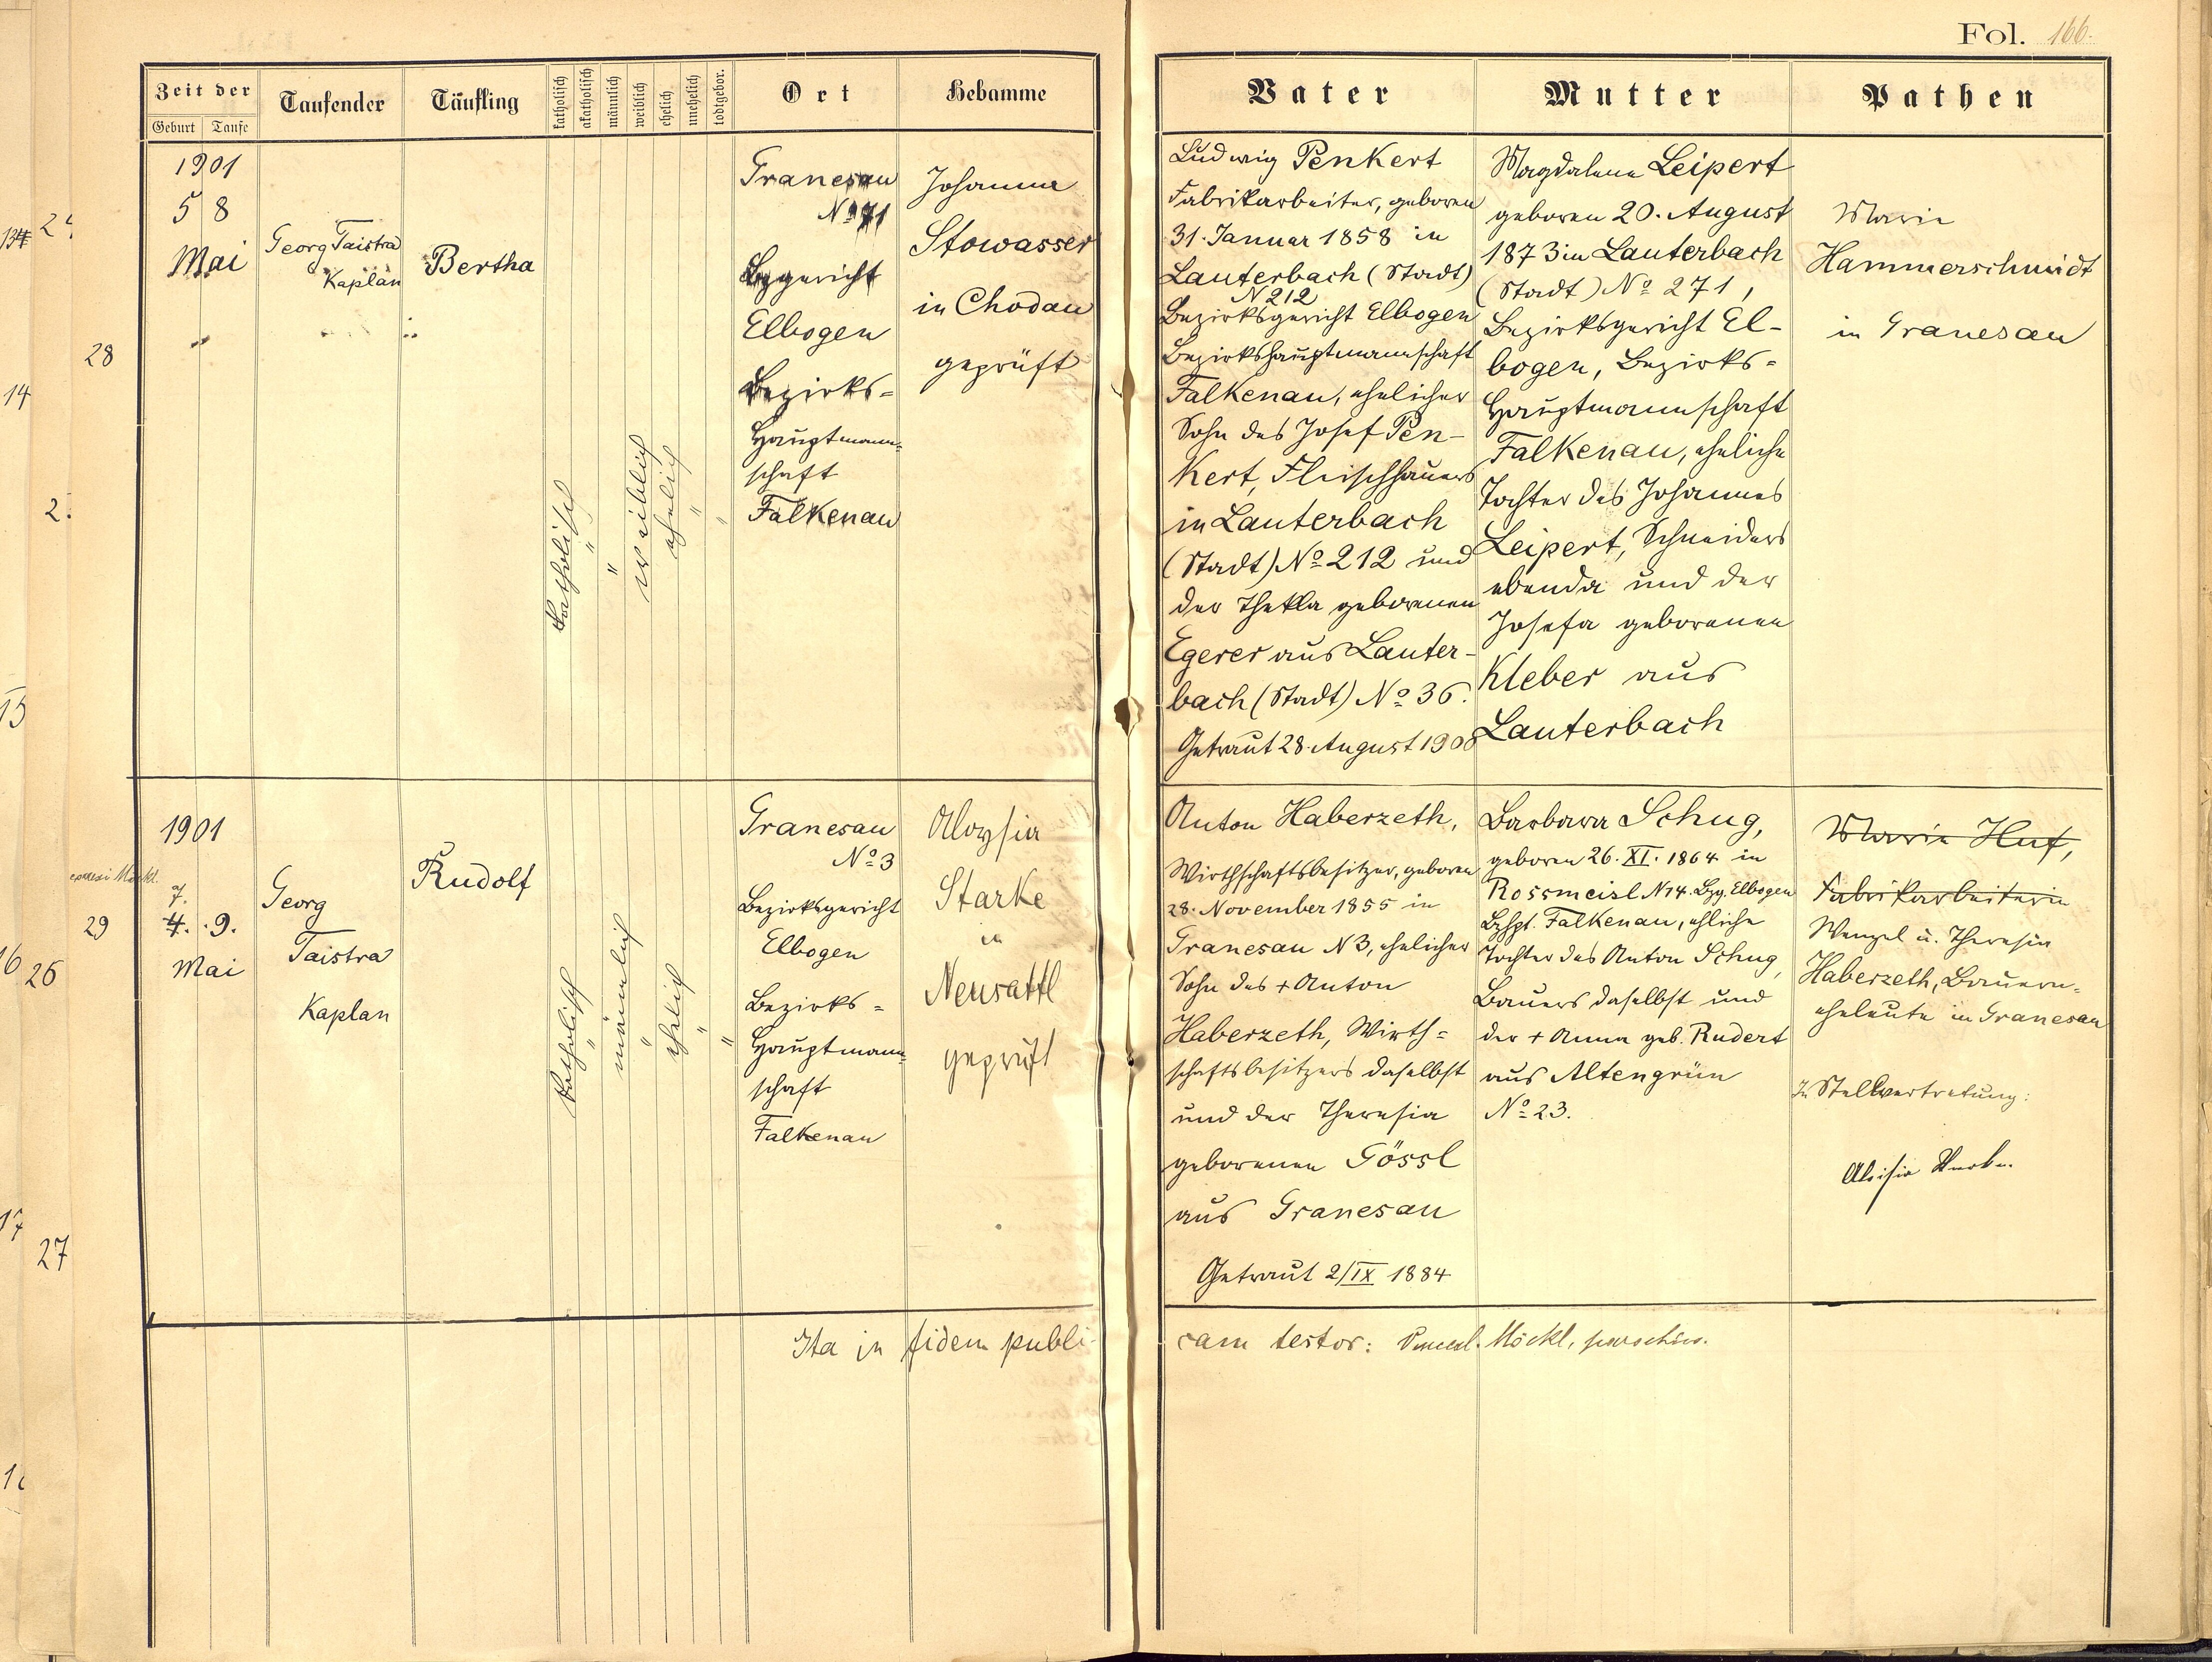 Fol. 166.
Zeit der
Geburt Taufe
Taufender
Täufling
katholisch
akatholisch
männlich
weiblich
ehelich
unehelich
todtgebor.
Ort
Hebamme
Vater
Mutter
Pathen
28
1901
5 8
Mai
Georg Taistra
Kaplan
Bertha
katholisch
"
"
weiblich
ehelich
"
"
Granesau
No 71
Bzgericht
Elbogen
Bezirks=
Hauptmann=
schaft
Falkenau
Johanna
Stowasser
in Chodau
geprüft
Ludwig Penkert
Fabrikarbeiter, geboren
31. Januar 1858 in
Lauterbach (Stadt)
N 212
Bezirksgericht Elbogen
Bezirkshauptmannschaft
Falkenau, ehelicher
Sohn des Josef Pen-
kert, Fleischhauers
in Lauterbach
(Stadt) No 212 und
der Thekla geborenen
Egerer aus Lauter-
bach (Stadt) No 36.
Getraut 28. August 1900
Magdalena Leipert
geboren 20. August
1873 in Lauterbach
(Stadt) No 271,
Bezirksgericht El-
bogen, Bezirks=
Hauptmannschaft
Falkenau, eheliche
Tochter des Johannes
Leipert, Schneiders
ebenda und der
Josefa geborenen
Kleber aus
Lauterbach
Marie
Hammerschmidt
in Granesau
29
1901
7.
4. 9.
Mai
Georg
Taistra
Kaplan
Rudolf
katholisch
"
männlich
"
ehelich
"
"
Granesau
No 3
Bezirksgericht
Elbogen
Bezirks=
Hauptmann=
schaft
Falkenau
Aloysia
Starke
in
Neusattl
geprüft
Anton Haberzeth,
Wirthschaftsbesitzer, geboren
28. November 1855 in
Granesau N 3, ehelicher
Sohn des + Anton
Haberzeth, Wirth=
schaftsbesitzers daselbst
und der Theresia
geborenen Gössl
aus Granesau
Getraut 2/IX 1884
Barbara Schug,
geboren 26. XI. 1864 in
Rossmeisl N 14. Bzg. Elbogen
Bzhpt. Falkenau, ehliche
Tochter des Anton Schug,
Bauers daselbst und
der + Anna geb. Rudert
aus Altengrün
No 23.
Maria Huf,
Fabrikarbeiterin
Wenzel u. Theresia
Haberzeth, Bauern=
eheleute in Granesau
In Stellvertretung:
Aloisia Starke.
Ita in fidem publi-
cam testor: Möckl, parochus.
14
15
16
26
17
27